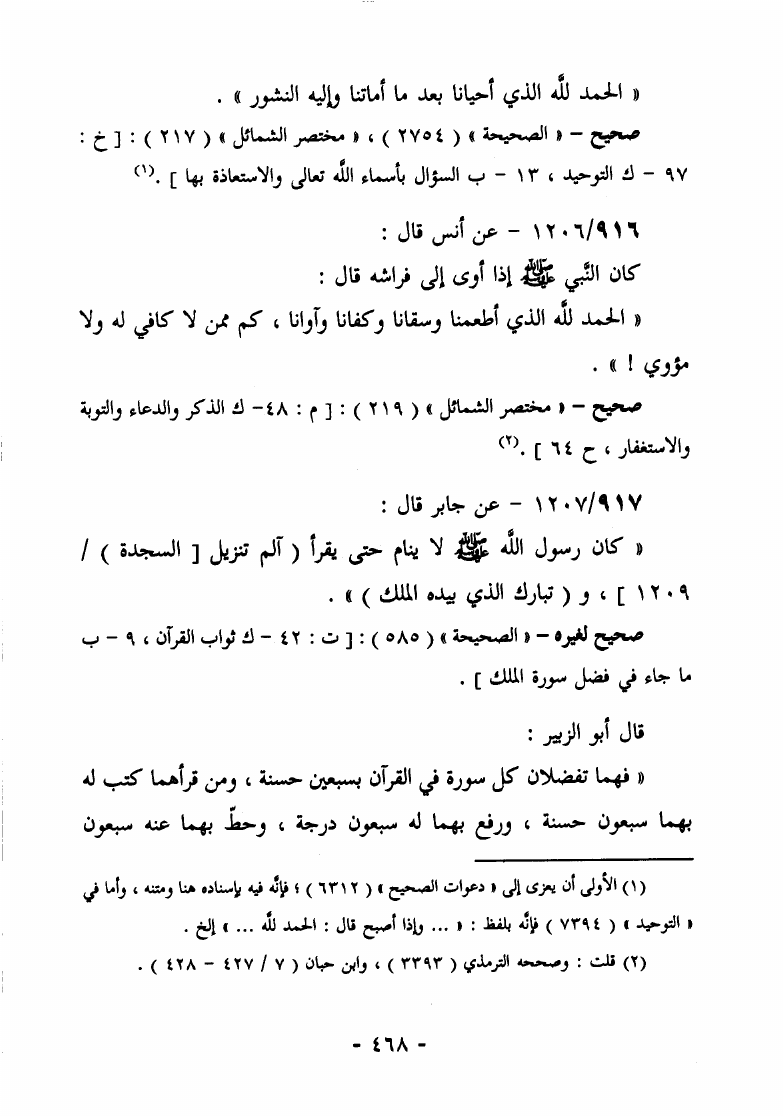 « الحمد لله الذي أحيانا بعد ما أماتنا وإليه النشور » .
صحيح – « الصحيحة » ( ٢٧٥٤ ) ، « مختصر الشمائل » ( ٢١٧ ) : [ خ :
٩٧ – ك التوحيد ، ١٣ – ب السؤال بأسماء الله تعالى والاستعاذة بها ] .(١)
١٢٠٦/٩١٦ – عن أنس قال :
كان النَّبي ﷺ إذا أوى إلى فراشه قال :
« الحمد لله الذي أطعمنا وسقانا وكفانا وآوانا ، كم ممن لا كافي له ولا
مؤوي ! » .
صحيح – « مختصر الشمائل » ( ٢١٩ ) : [ م : ٤٨– ك الذكر والدعاء والتوبة
والاستغفار ، ح ٦٤ ] .(٢)
١٢٠٧/٩١٧ – عن جابر قال :
« كان رسول الله ﷺ لا ينام حتى يقرأ ( آلم تنزيل [ السجدة ) /
١٢٠٩ ] ، و ( تبارك الذي بيده الملك ) » .
صحيح لغيره – « الصحيحة » ( ٥٨٥ ) : [ ت : ٤٢ – ك ثواب القرآن ، ٩ – ب
ما جاء في فضل سورة الملك ] .
قال أبو الزبير :
« فهما تفضلان كل سورة في القرآن بسبعين حسنة ، ومن قرأهما كتب له
بهما سبعون حسنة ، ورفع بهما له سبعون درجة ، وحطَّ بهما عنه سبعون
(١) الأولى أن يعزى إلى « دعوات الصحيح » ( ٦٣١٢ ) ؛ فإنَّه فيه بإسناده هنا ومتنه ، وأما في
« التوحيد » ( ٧٣٩٤ ) فإنَّه بلفظ : « ... وإذا أصبح قال : الحمد لله ... » إلخ .
(٢) قلت : وصححه الترمذي ( ٣٣٩٣ ) ، وابن حبان ( ٧ / ٤٢٧ – ٤٢٨ ) .
- ٤٦٨ -